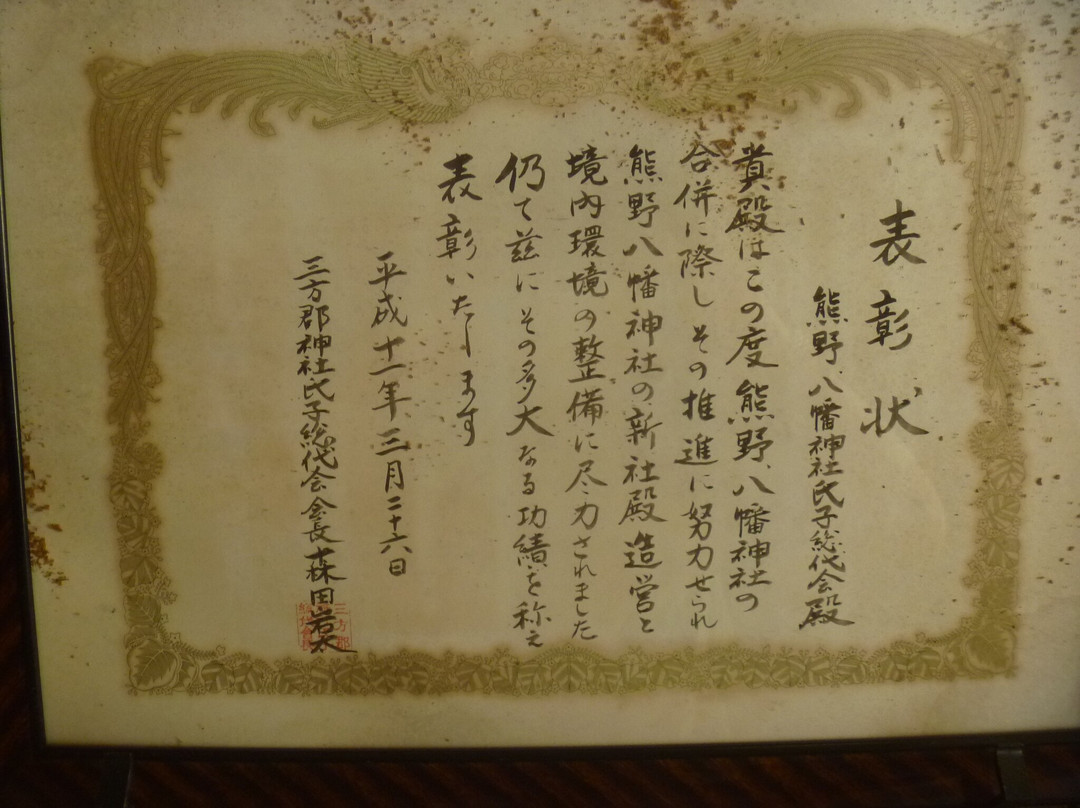 表彰状
熊野八幡神社氏子総代会殿
貴殿はこの度熊野八幡神社の
合併に際しその推進に努力せられ
熊野八幡神社の新社殿造営と
境内環境の整備に尽力されました
仍て茲にその多大なる功績を称え
表彰いたします
平成十一年三月二十六日
三方郡神社氏子総代会会長森田岩太
三方郡